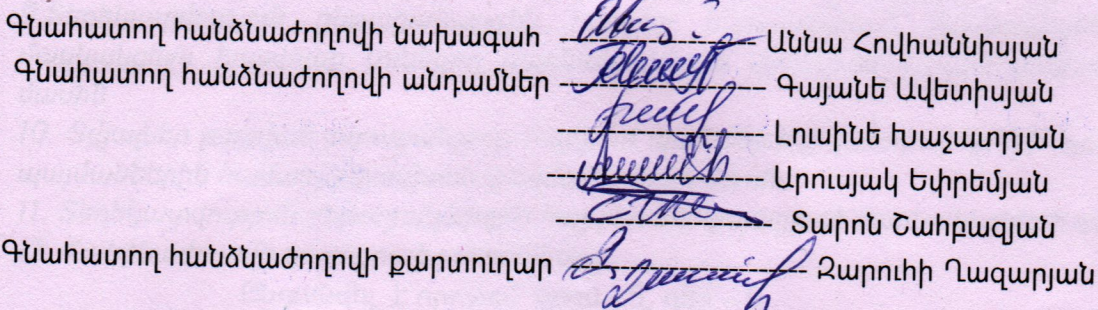 Գնահատող հանձնաժողովի նախագահ ---------------- Աննա Հովհաննիսյան
Գնահատող հանձնաժողովի անդամներ ---------------- Գայանե Ավետիսյան
---------------- Լուսինե Խաչատրյան
---------------- Արուսյակ Եփրեմյան
---------------- Տարոն Շահբազյան
Գնահատող հանձնաժողովի քարտուղար ---------------- Զարուհի Ղազարյան